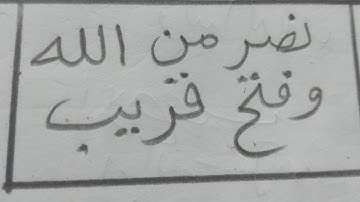 نصر من الله
وفتح قريب